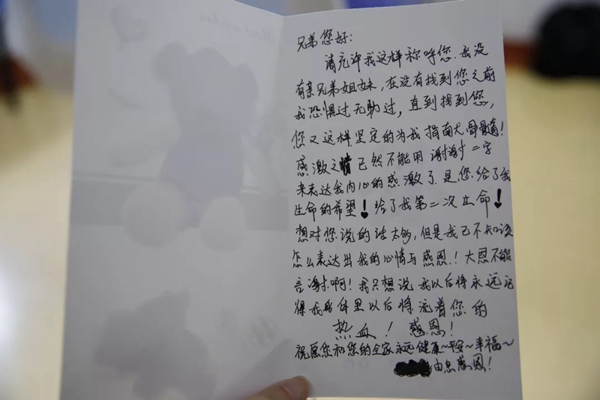 兄弟您好:
请允许我这样称呼您.我没
有亲兄弟姐妹,在没有找到您之前
我恐惧过无助过,直到找到您,
您又这样坚定的为我捐献骨髓!
感激之情已然不能用谢谢二字
来表达我内心的感激了.是您给了我
生命的希望!给了我第二次生命!
想对您说的话太多,但是我已不知该
怎么表达出我的心情与感恩!大恩不能
言谢啊!我只想说我以后将永远记
得我身体里以后将流着您的
热血!感恩!
祝愿您和您的全家永远健康~平安~幸福~
由衷感恩!